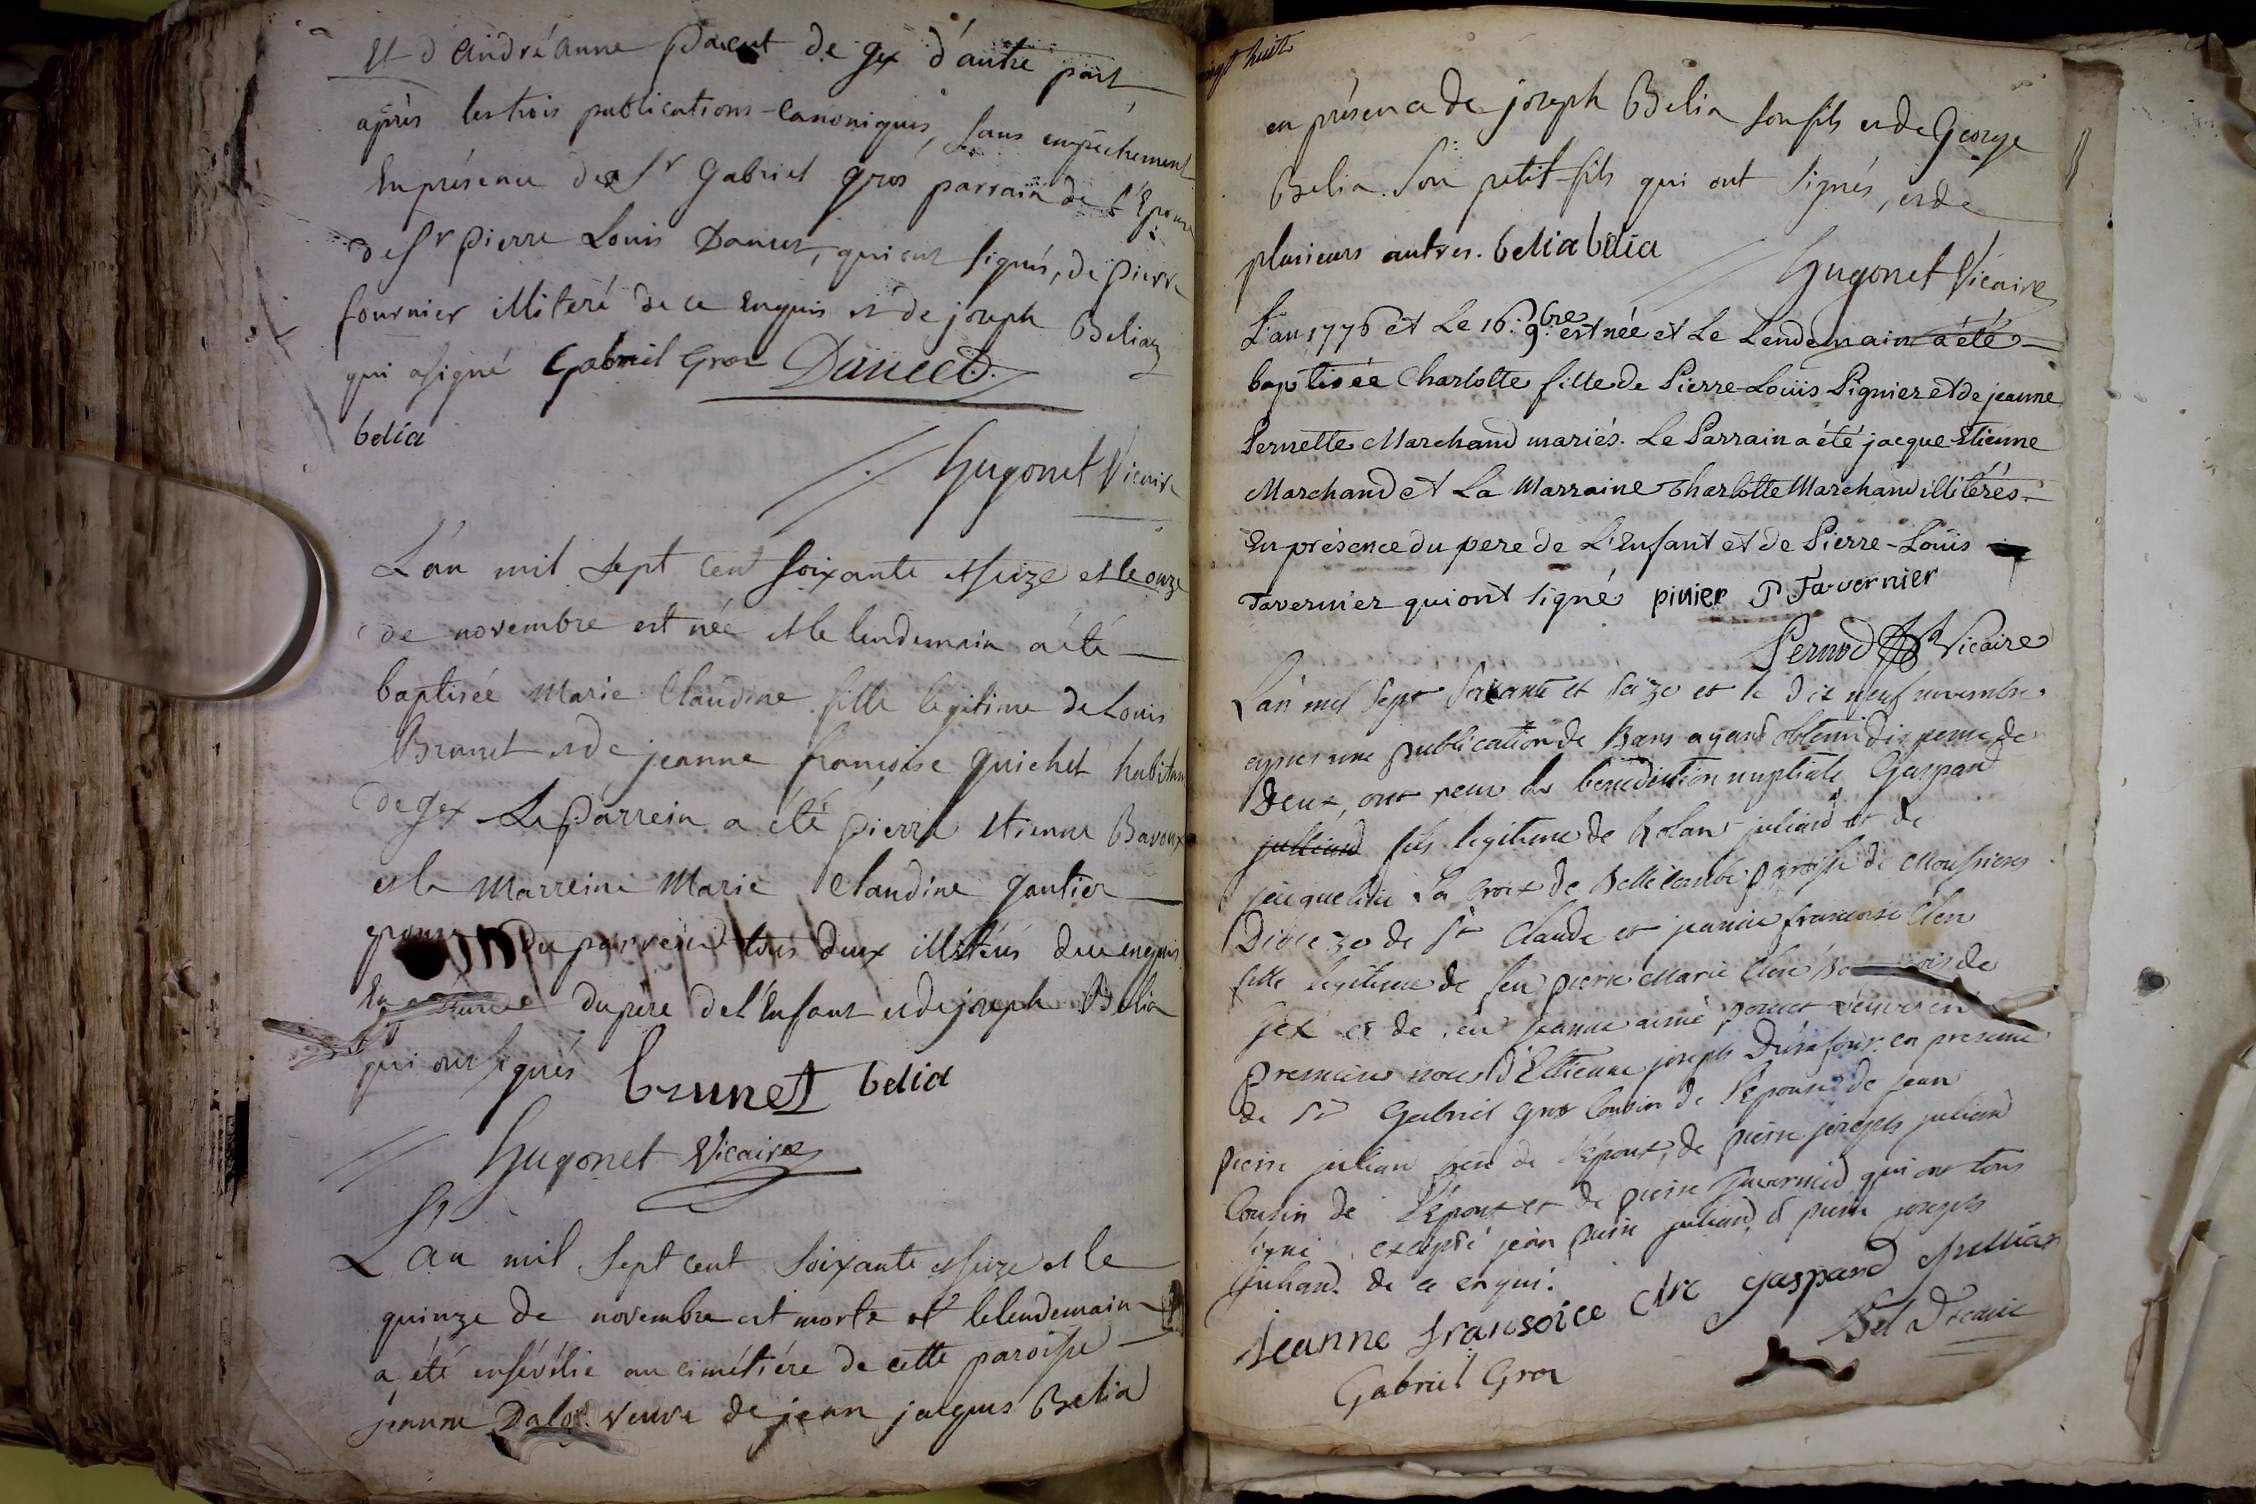 Et d'André Anne parent de gex d'autre part
après les trois publications canoniques, sans empêchement
En présence de Sr Gabriel gros parrain de l'Epouse
de Sr pierre Louis Dancet, qui ont signés, de pierre
fournier illiteré de ce Enquis et de joseph Beliaz
qui a signé Gabriel Gros Dancet
belia
Hugonet Vicaire
L'an mil sept cent soixante et seize et le onze
de novembre est née et le lendemain a été
baptisée Marie Claudine fille legitime de Louis
Brunet et de jeanne françoise Guichet habitans
de gex Le Parrein a été pierre Etienne Bavoux
et la Marreine Marie Claudine gautier
epouse du parrein tous deux illitérés de ce enquis
En présence du père de l'Enfant et de joseph Belia
qui ont signés brunet belia
Hugonet Vicaire
L'an mil sept cent soixante et seize et le
quinze de novembre est morte et le lendemain
a été ensévélie au cimétiére de cette paroisse
jeanne veuve de jean jacques Belia
vingt huit
en présence de joseph Belia son fils et de George
Belia son petit-fils qui ont signés, et de
plusieurs autres. belia belia
Hugonet Vicaire
L'an 1776 et Le 16: 9bre est née et Le Lendemain a été
baptisée Charlotte fille de Pierre-Louis Pignier et de jeanne
Pernette Marchand mariés. Le Parrain a été jacque Etienne
Marchand et La Marraine Charlotte Marchand illitérés.
En présence du pere de L'Enfant et de Pierre-Louis
Tavernier qui ont signé pinier P Tavernier
Pernod Vicaire
L'an mil sept soixante et seize et le dix neuf novembre
apres une publication de Bans ayant obtenu dispense de
Deux, ont reçu la benediction nuptiale Gaspard
julliand fils legitime de Rolan juliand et de
jacqueline La Croix de Bellecombe paroisse de Moussieres
Dioceze de St Claude et jeanne françoise Clerc
fille legitime de feu pierre Marie Clerc de
Gex et de jeanne aimé veuve en
premiere noce d'Ettienne joseph en presence
de Sr Gabriel Gros Cousin de l'epouse de jean
pierre julian frere de l'epoux, de pierre joseph juliand
Cousin de L'Epoux et de pierre Tavernier qui ont tous
signé, excepté jean pierre juliand et pierre joseph
juliand de ce enquis.
jeanne fransoice clerc gaspard Jullian
Gabriel Gros